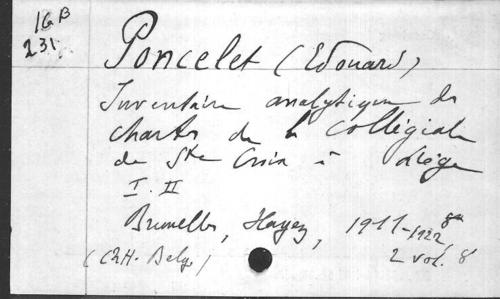 IG B
231
Poncelet (Edouard)
Inventaire analytique des
chartes de la Collégiale
de Ste Croix à Liège
I. II
Bruxelles, Hayez, 1911-1922,
(CRH. Belge) 2 vol. 8